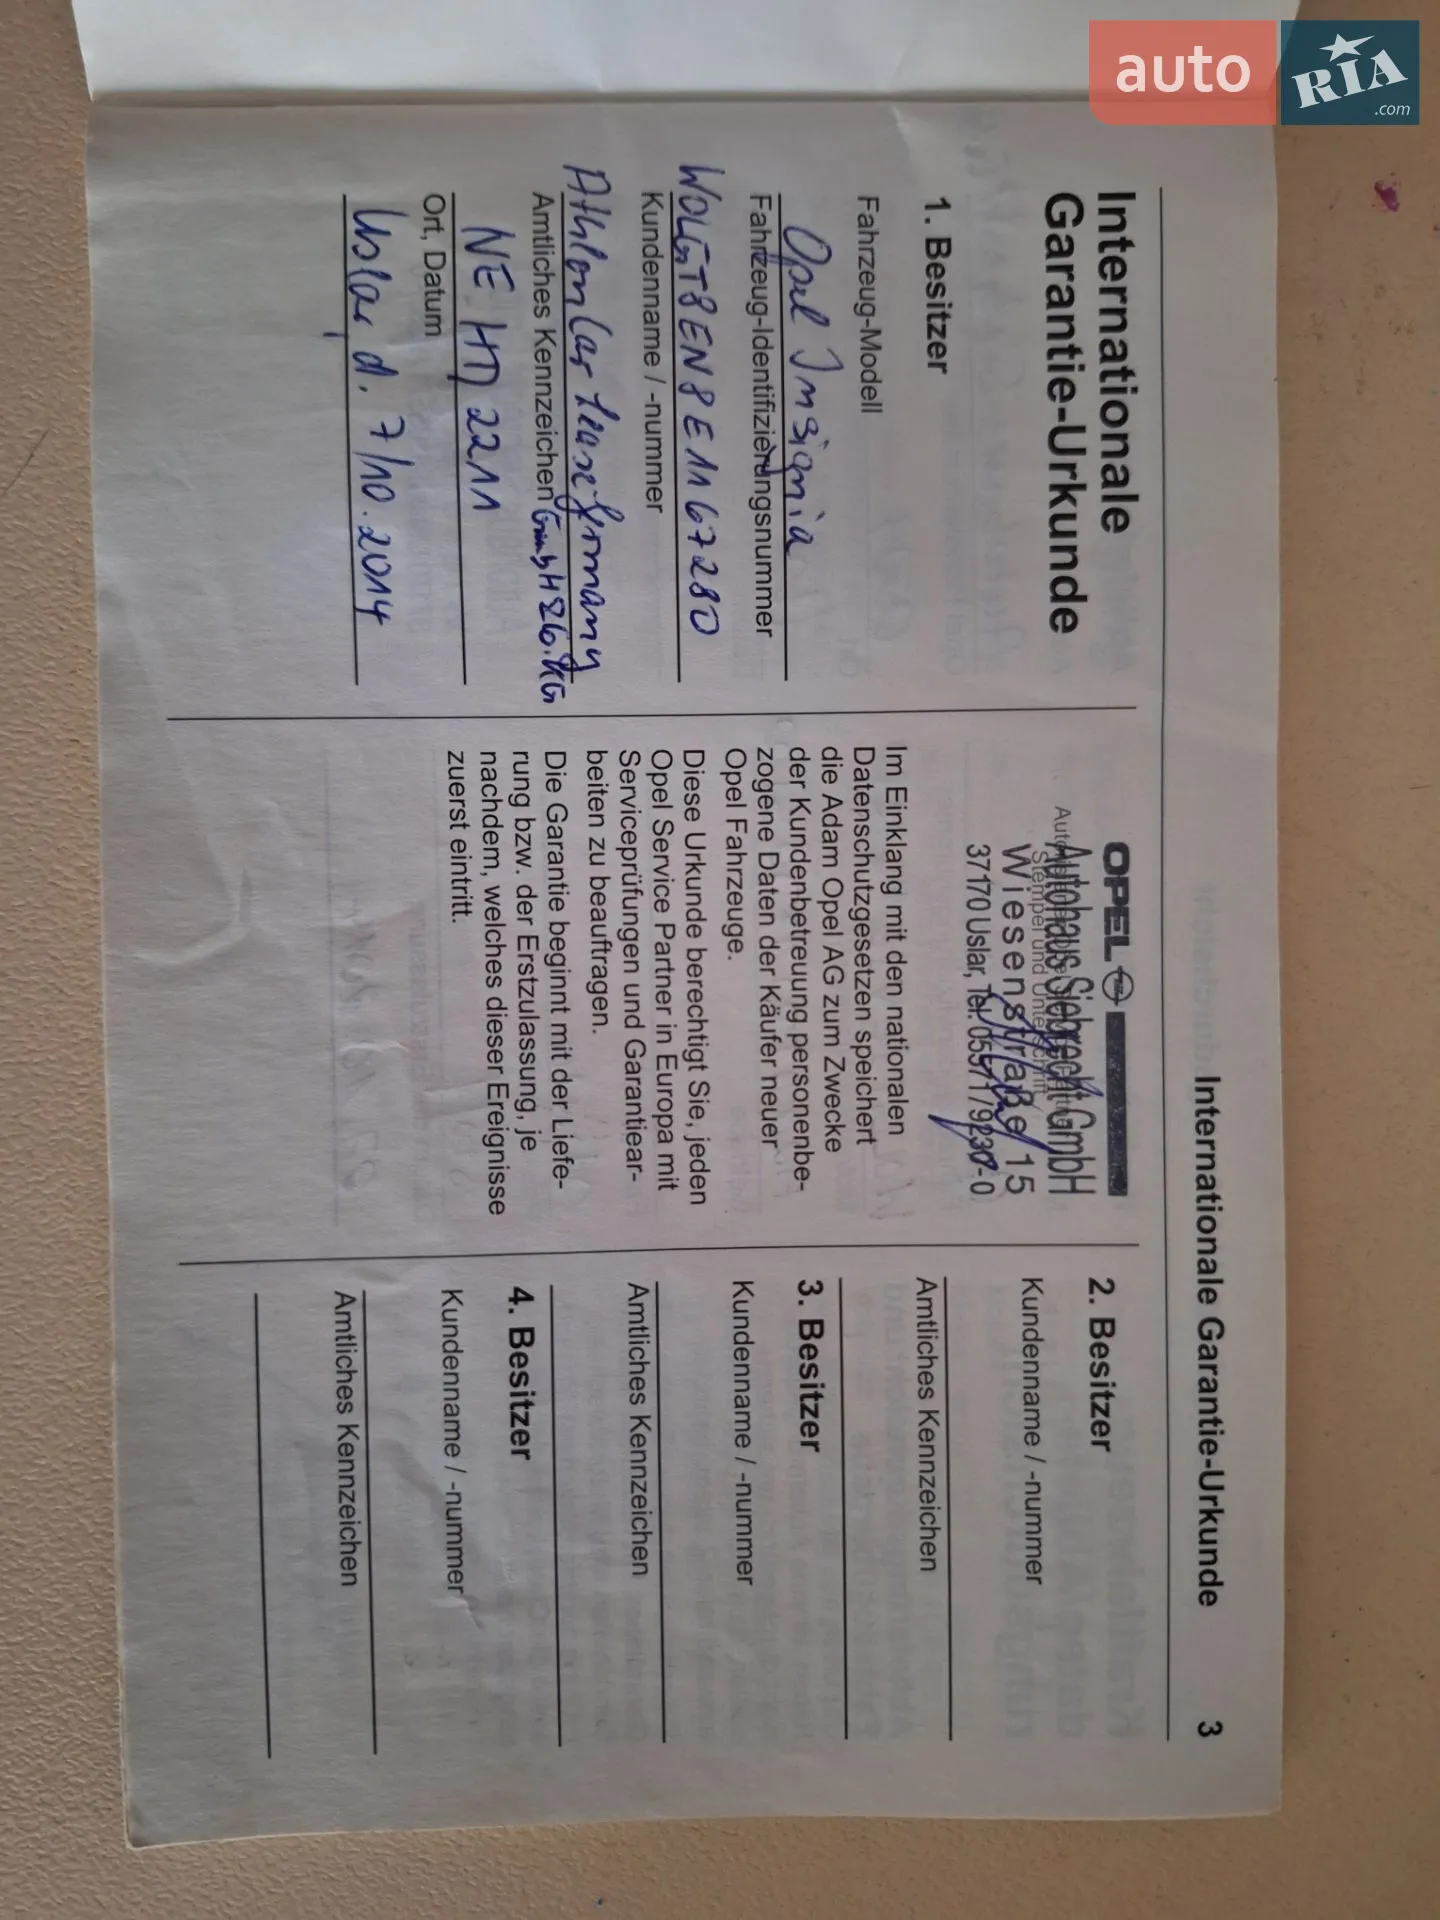 auto
RIA
.com
Internationale Garantie-Urkunde 3
Internationale
Garantie-Urkunde
1. Besitzer
Fahrzeug-Modell
Opel Insignia
Fahrzeug-Identifizierungsnummer
W0LGT8EN8E1167280
Kundenname / -nummer
Athlon Car Lease Germany
GmbH & Co. KG
Amtliches Kennzeichen
NE HD 2211
Ort, Datum
Uslar, d. 7/10.2014
OPEL
Autohaus Siebrecht GmbH
Stempel und Unterschrift
Wiesenstraße 15
37170 Uslar, Tel. 05571/9230-0
Im Einklang mit den nationalen
Datenschutzgesetzen speichert
die Adam Opel AG zum Zwecke
der Kundenbetreuung personenbe-
zogene Daten der Käufer neuer
Opel Fahrzeuge.
Diese Urkunde berechtigt Sie, jeden
Opel Service Partner in Europa mit
Serviceprüfungen und Garantiear-
beiten zu beauftragen.
Die Garantie beginnt mit der Liefe-
rung bzw. der Erstzulassung, je
nachdem, welches dieser Ereignisse
zuerst eintritt.
2. Besitzer
Kundenname / -nummer
Amtliches Kennzeichen
3. Besitzer
Kundenname / -nummer
Amtliches Kennzeichen
4. Besitzer
Kundenname / -nummer
Amtliches Kennzeichen